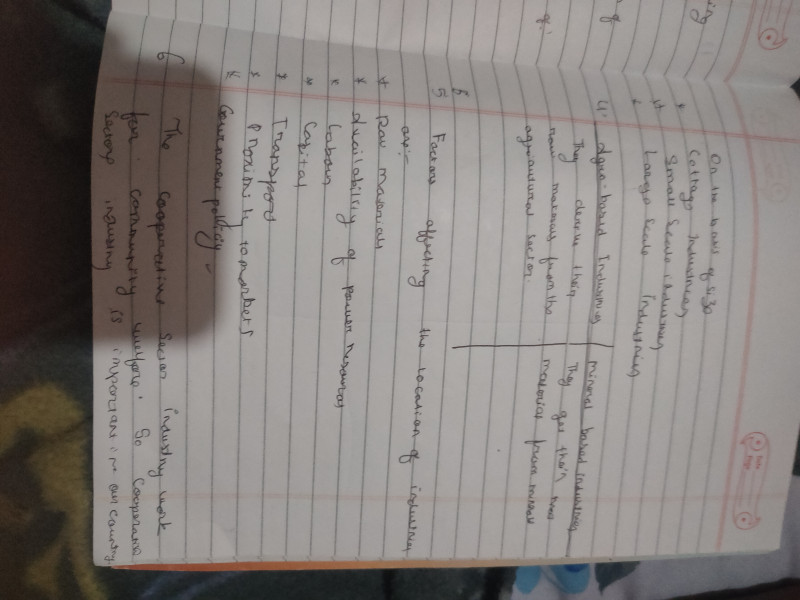 On the basis of size
Cottage Industries
Small Scale industries
Large Scale Industries
4. Agro-based Industries | Mineral based industries
They derive their | They get their raw
raw materials from the | material from minerals
agricultural sector.
5 Factors affecting the location of industries
are:-
* Raw materials
* Availability of power resources
* Labour
* Capital
* Transport
* Proximity to markets
* Government policy
6 The cooperative sector industry work
for community welfare. So cooperative
sector industry is important in our country